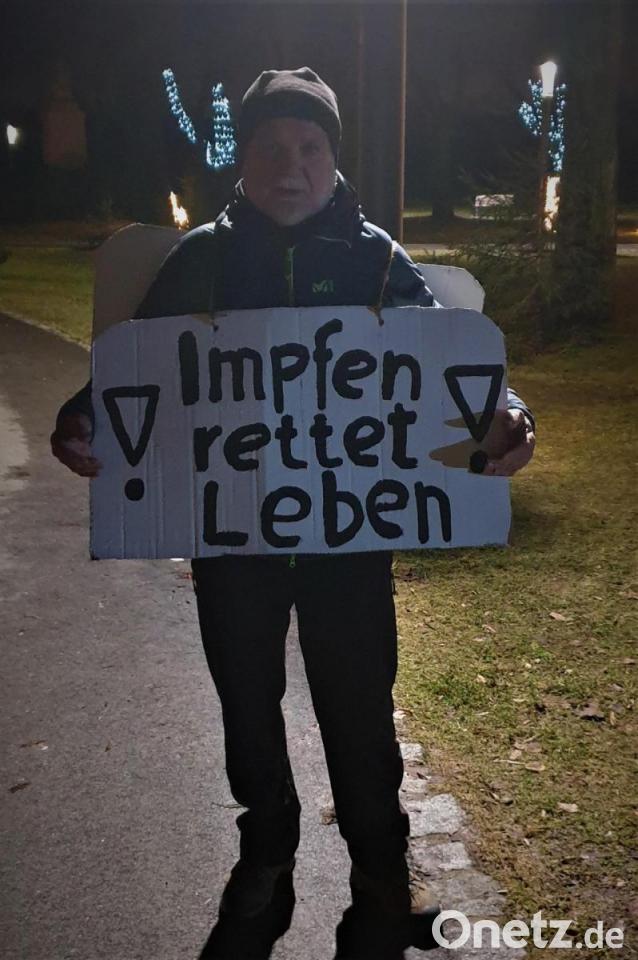 ! Impfen !
rettet
Leben
Onetz.de